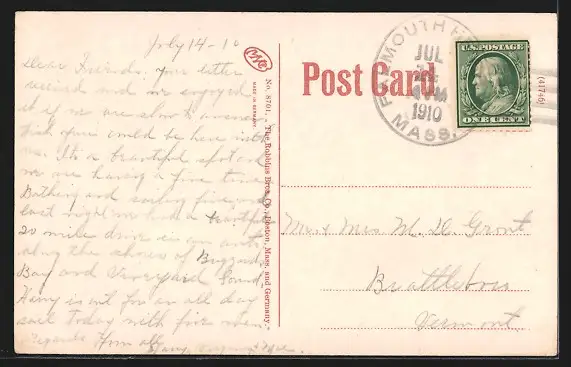 July 14-10
Dear Friends: Your letter
received and we enjoyed
it if we are slow to answer
Wish you could be here with
us. It's a beautiful spot and
we are having a fine time
Bathing and sailing fine and
last night we had a beautiful
20 mile drive in an auto
along the shores of Buzzards
Bay and Vineyard Sound.
Harry is out for an all day
sail today with five men.
Regards from all
No. 8701. The Robbins Bros. Co., Boston, Mass. and Germany.
MADE IN GERMANY.
Post Card.
FALMOUTH
JUL
M
1910
MASS.
U.S. POSTAGE
ONE CENT
(41746)
Mr & Mrs M. D. Grout
Brattleboro
Vermont.